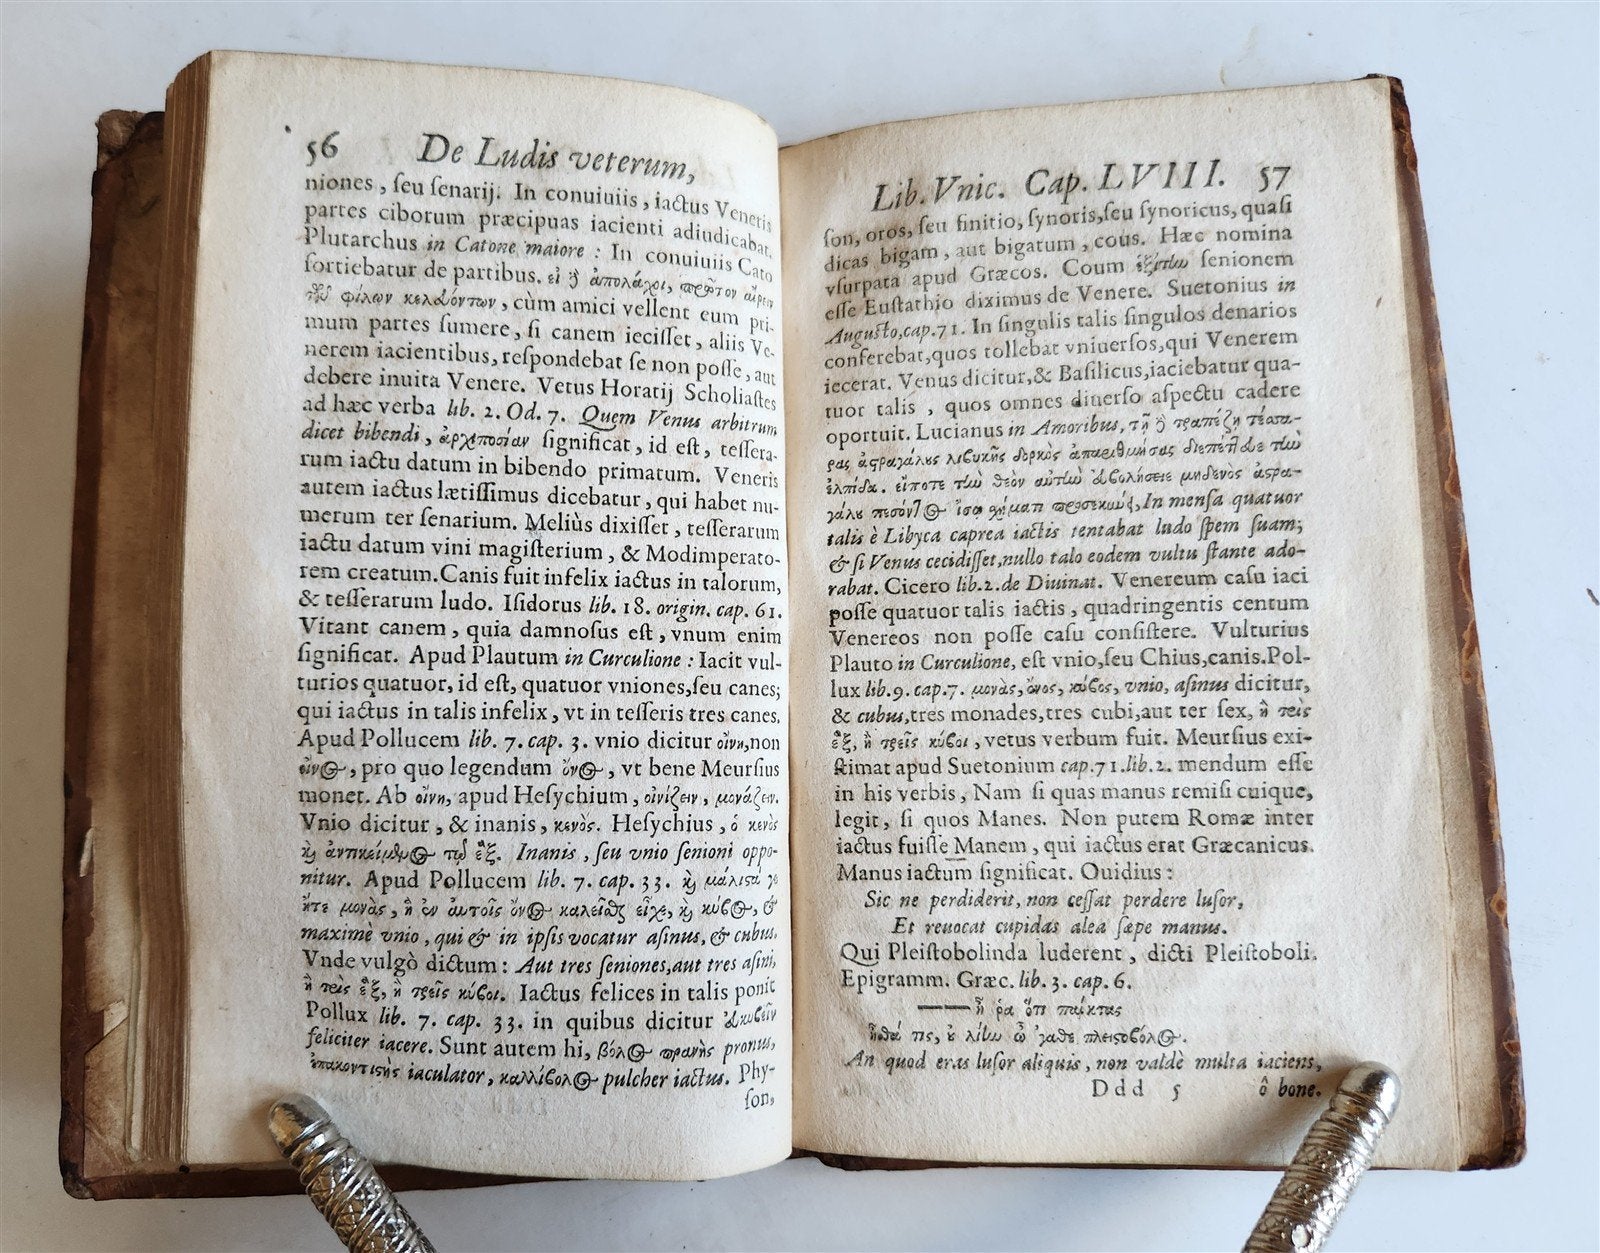 56 De Ludis veterum,
niones, ſeu ſenarij. In conuiuiis, iactus Veneris
partes ciborum præcipuas iacienti adiudicabat.
Plutarchus in Catone maiore : In conuiuiis Cato
ſortiebatur de partibus. εἰ ἀπολάχοι,
φίλων κελευόντων, cùm amici vellent eum pri-
mum partes ſumere, ſi canem ieciſſet, aliis Ve-
nerem iacientibus, reſpondebat ſe non poſſe, aut
debere inuita Venere. Vetus Horatij Scholiaſtes
ad hæc verba lib. 2. Od. 7. Quem Venus arbitrum
dicet bibendi, ἀρχιποσίαν ſignificat, id eſt, teſſera-
rum iactu datum in bibendo primatum. Veneris
autem iactus lætiſſimus dicebatur, qui habet nu-
merum ter ſenarium. Meliùs dixiſſet, teſſerarum
iactu datum vini magiſterium, & Modimperato-
rem creatum. Canis fuit infelix iactus in talorum,
& teſſerarum ludo. Iſidorus lib. 18. origin. cap. 61.
Vitant canem, quia damnoſus eſt, vnum enim
ſignificat. Apud Plautum in Curculione : Iacit vul-
turios quatuor, id eſt, quatuor vniones, ſeu canes;
qui iactus in talis infelix, vt in teſſeris tres canes.
Apud Pollucem lib. 7. cap. 3. vnio dicitur οἴνη, non
οἶνος, pro quo legendum ὄνος, vt bene Meurſius
monet. Ab οἴνη, apud Heſychium, οἰνίζειν, μονάζειν.
Vnio dicitur, & inanis, κενός. Heſychius, ὁ κενὸς
κὶ ἀντικείμενος τῷ ἓξ. Inanis, ſeu vnio ſenioni oppo-
nitur. Apud Pollucem lib. 7. cap. 33. κὶ μάλιστά γε
ἥτε μονὰς, ἣ ἐν αὐτοῖς ὄνος καλεῖσθαι εἶχε, κὶ κύβος, &
maximè vnio, qui & in ipsis vocatur aſinus, & cubus.
Vnde vulgò dictum : Aut tres ſeniones, aut tres aſini,
ἢ τρὶς ἓξ, ἢ τρεῖς κύβοι. Iactus felices in talis ponit
Pollux lib. 7. cap. 33. in quibus dicitur εὐκυβεῖν
feliciter iacere. Sunt autem hi, βόλος πρανὴς pronus,
ἐπακοντιστὴς iaculator, καλλίβολος pulcher iactus. Phy-
ſon,
Lib. Vnic. Cap. LVIII. 57
ſon, oros, ſeu finitio, ſynoris, ſeu ſynoricus, quaſi
dicas bigam, aut bigatum, cous. Hæc nomina
vſurpata apud Græcos. Coum ἑξίτην ſenionem
eſſe Euſtathio diximus de Venere. Suetonius in
Auguſto, cap. 71. In ſingulis talis ſingulos denarios
conferebat, quos tollebat vniuerſos, qui Venerem
iecerat. Venus dicitur, & Baſilicus, iaciebatur qua-
tuor talis, quos omnes diuerſo aſpectu cadere
oportuit. Lucianus in Amoribus, τῇ τραπέζῃ τέσσα-
ρας ἀστραγάλους λιβυκῆς δορκὸς ἀπαριθμήσας διεπέττευε τὴν
ἐλπίδα. εἴποτε τὴν θεὸν αὐτὴν εὐβολήσειε μηδενὸς ἀστρα-
γάλου πεσόντος ἴσῳ σχήματι προσεκύνει, In menſa quatuor
talis è Libyca caprea iactis tentabat ludo ſpem ſuam;
& ſi Venus cecidiſſet, nullo talo eodem vultu ſtante ado-
rabat. Cicero lib. 2. de Diuinat. Venereum caſu iaci
poſſe quatuor talis iactis, quadringentis centum
Venereos non poſſe caſu conſiſtere. Vulturius
Plauto in Curculione, eſt vnio, ſeu Chius, canis. Pol-
lux lib. 9. cap. 7. μονὰς, ὄνος, κύβος, vnio, aſinus dicitur,
& cubus, tres monades, tres cubi, aut ter ſex, ἢ τρὶς
ἓξ, ἢ τρεῖς κύβοι, vetus verbum fuit. Meurſius exi-
ſtimat apud Suetonium cap. 71. lib. 2. mendum eſſe
in his verbis, Nam ſi quas manus remiſi cuique,
legit, ſi quos Manes. Non putem Romæ inter
iactus fuiſſe Manem, qui iactus erat Græcanicus.
Manus iactum ſignificat. Ouidius :
Sic ne perdiderit, non ceſſat perdere luſor,
Et reuocat cupidas alea ſæpe manus.
Qui Pleiſtobolinda luderent, dicti Pleiſtoboli.
Epigramm. Græc. lib. 3. cap. 6.
—— ἦ ῥα ὅτι παίκτας
ἦσθά τις, ὐ λίην ὦ ᾽γαθὲ πλειστοβόλος.
An quod eras luſor aliquis, non valdè multa iaciens,
Ddd 5 ô bone.